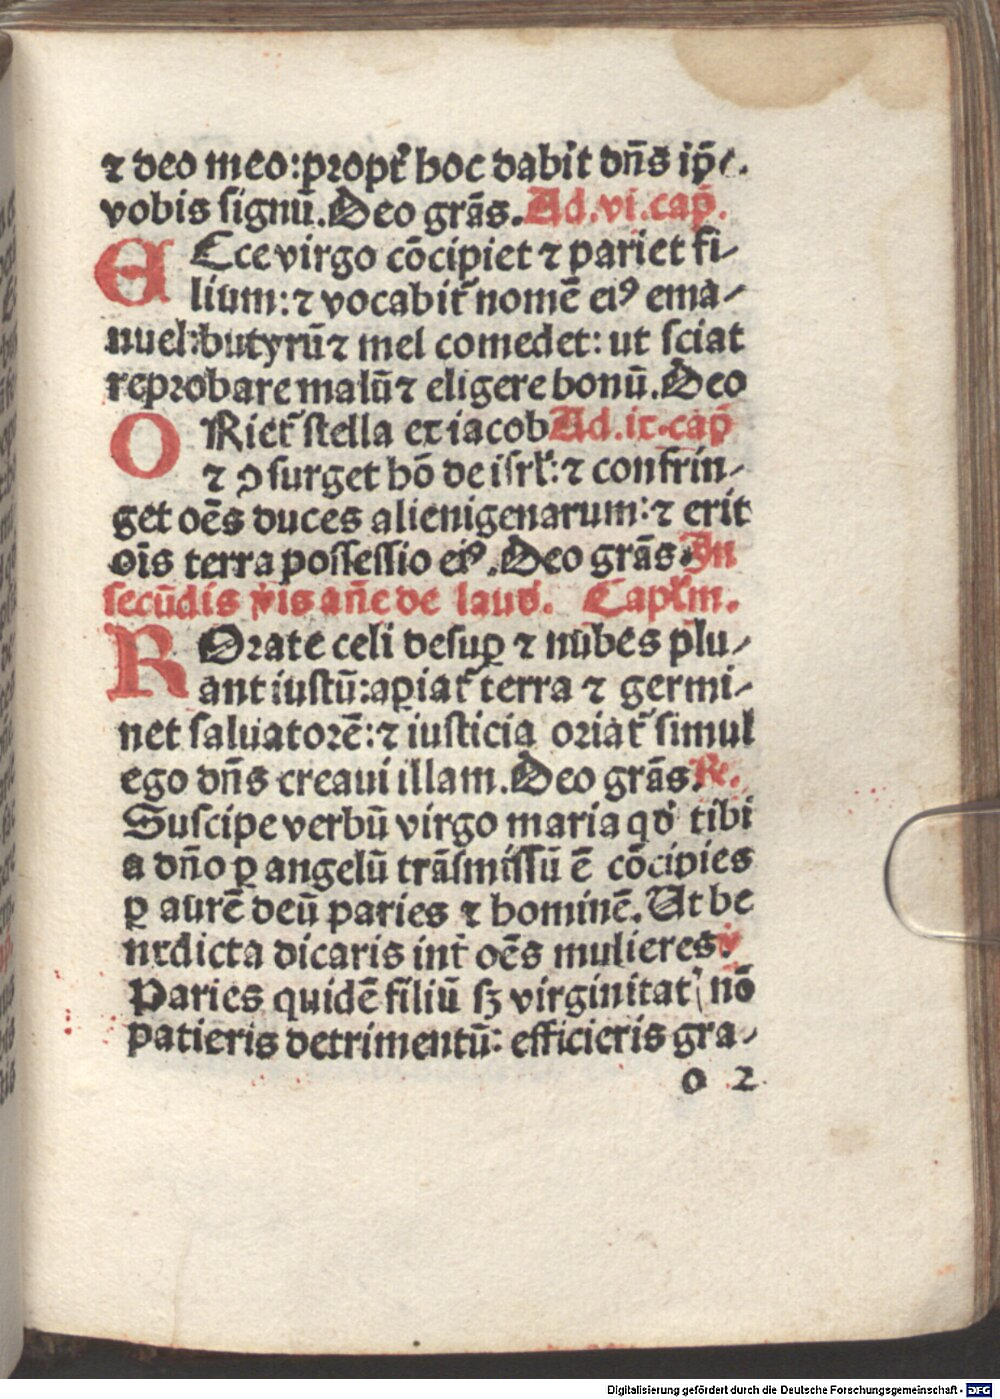 ⁊ deo meo: propt̄ hoc dabit dn̄s ip̄e.
vobis signū. Deo grās. Ad. vi. cap̄.
ECce virgo cōcipiet ⁊ pariet fi-
lium: ⁊ vocabit̄ nomē eiꝰ ema-
nuel: butyrū ⁊ mel comedet: ut sciat
reprobare malū ⁊ eligere bonū. Deo
ORiet̄ stella ex iacob Ad. ix. cap̄
⁊ ꝯsurget hō de isrl̄: ⁊ confrin-
get oēs duces alienigenarum: ⁊ erit
oīs terra possessio eiꝰ. Deo grās. In
secūdis v̄is an̄e de laud. Capl̄m.
ROrate celi desuꝑ ⁊ nūbes plu-
ant iustū: aꝑiat̄ terra ⁊ germi-
net saluatorē: ⁊ iusticia oriat̄ simul
ego dn̄s creaui illam. Deo grās. R̄.
Suscipe verbū virgo maria qd̄ tibi
a dn̄o ꝑ angelū trāsmissū ē cōcipies
ꝑ aurē deū paries ⁊ hominē. Ut be
nedicta dicaris int̄ oēs mulieres. v̄
Paries quidē filiū sꝫ virginitat( nō
patieris detrimentū: efficieris gra-
o 2
Digitalisierung gefördert durch die Deutsche Forschungsgemeinschaft - DFG